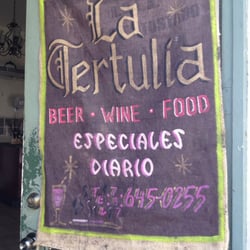 La
Tertulia
BEER · WINE · FOOD
ESPECIALES
DIARIO
645-0255